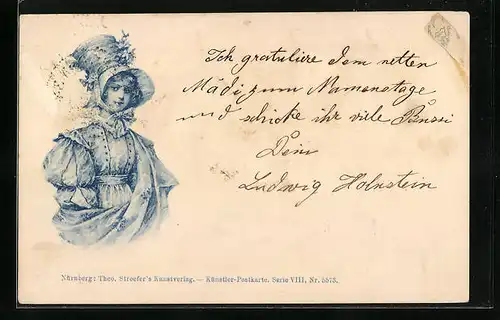 Ich gratuliere dem netten
Mädi zum Namenstage
und schicke ihr viele Bussi
Dein
Ludwig Holnstein
Nürnberg: Theo. Stroefer's Kunstverlag. — Künstler-Postkarte. Serie VIII, Nr. 5575.